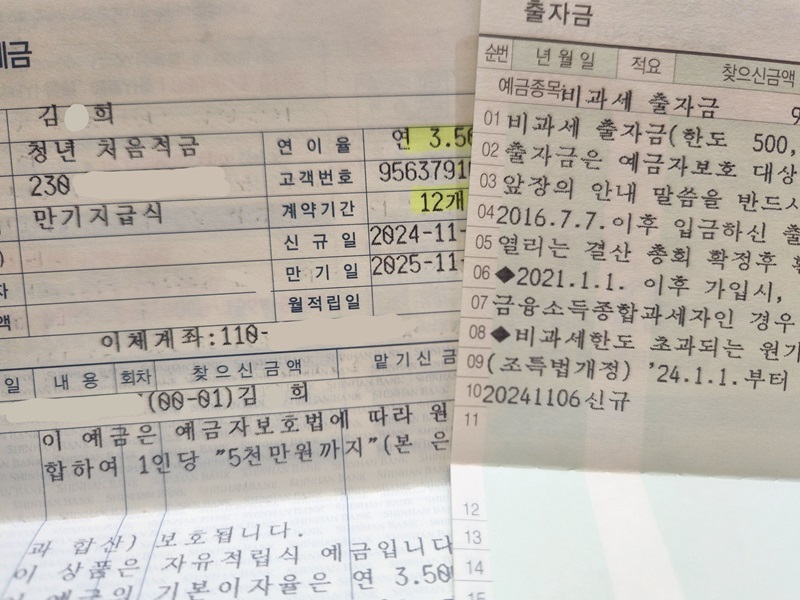 예금
김 희
청년 처음적금
230
만기지급식
연 이 율 연 3.50
고객번호 95637910
계약기간 12개
신 규 일 2024-11-
만 기 일 2025-11-
월적립일
이체계좌:110-
일 내 용 회차 찾으신금액 맡기신금
(00-01)김 희
이 예금은 예금자보호법에 따라 원
합하여 1인당 "5천만원까지"(본 은
과 합산) 보호됩니다.
이 상품은 자유적립식 예금입니다
기본이자율은 연 3.50
출자금
순번 년월일 적요 찾으신금액
예금종목비과세 출자금
01 비과세 출자금(한도 500,
02 출자금은 예금자보호 대상
03 앞장의 안내 말씀을 반드시
04 2016.7.7.이후 입금하신 출
05 열리는 결산 총회 확정후
06 ◆2021.1.1. 이후 가입시,
07 금융소득종합과세자인 경우
08 ◆비과세한도 초과되는 원기
09 (조특법개정) '24.1.1.부터
10 20241106신규
11
12
13
14
15